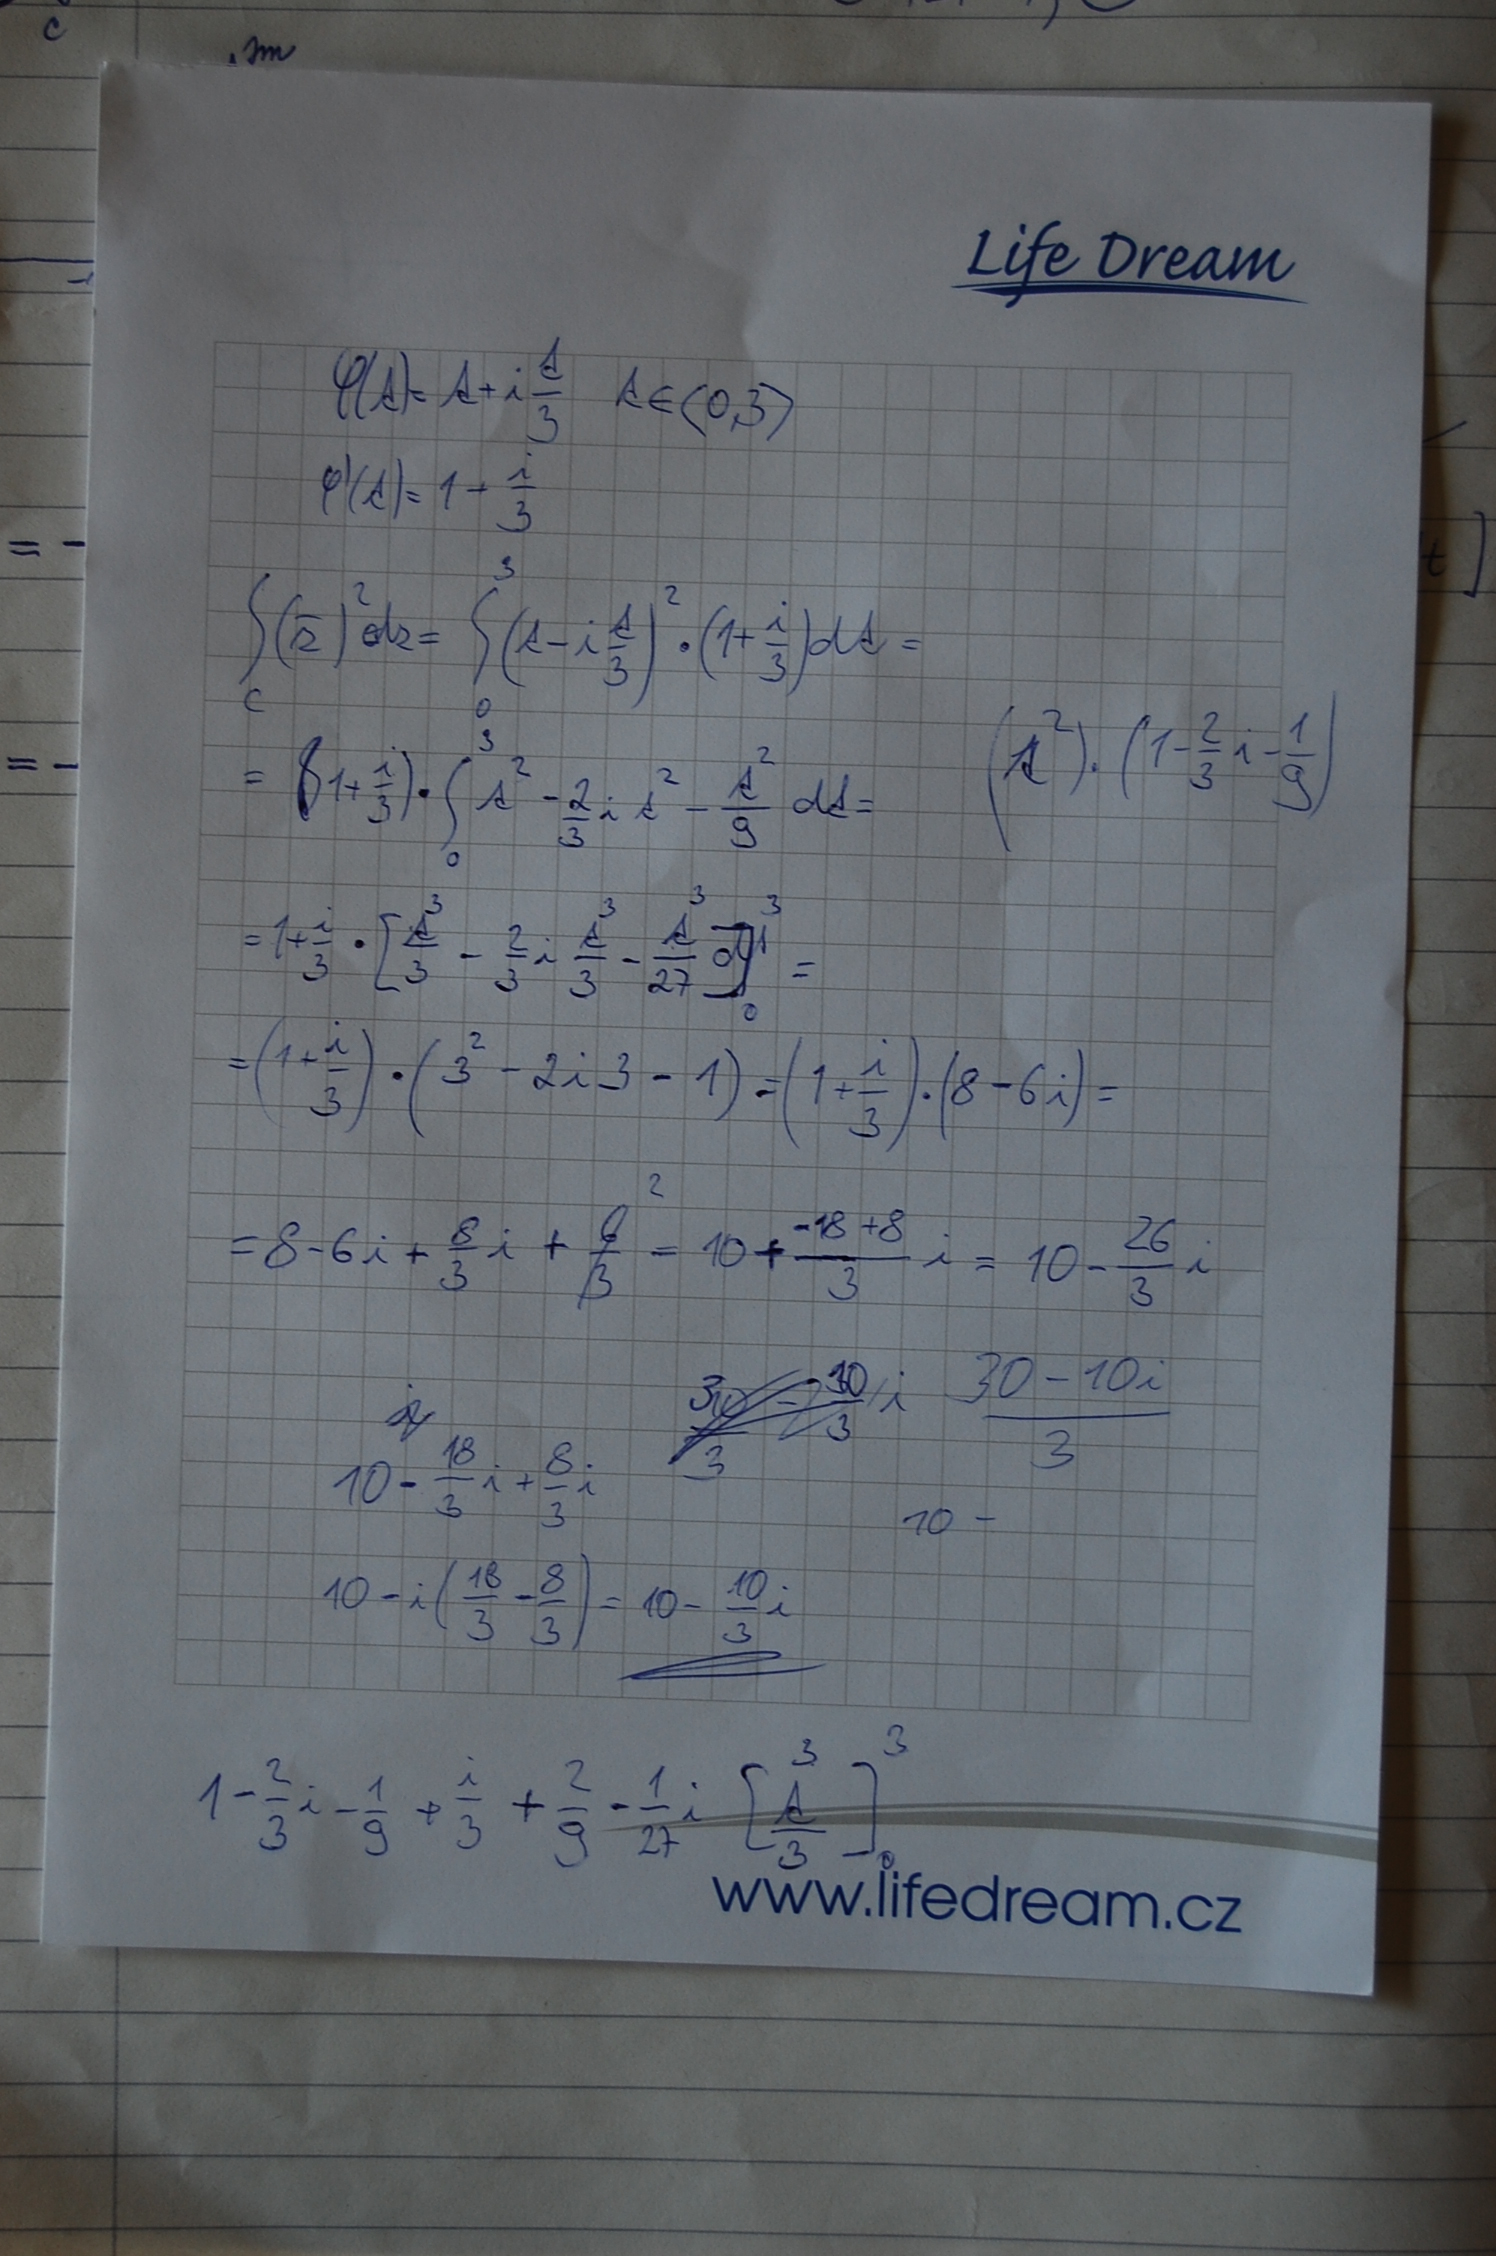 c
Im
Life Dream
φ(t) = t + i t/3   t ∈ ⟨0,3⟩
φ'(t) = 1 + i/3
∫_C (z̄)² dz = ∫_0^3 (t - i t/3)² · (1 + i/3) dt =
= (1 + i/3) · ∫_0^3 t² - 2/3 i t² - t²/9 dt =   (t²) · (1 - 2/3 i - 1/9)
= 1 + i/3 · [t³/3 - 2/3 i t³/3 - t³/27]_0^3 =
= (1 + i/3) · (3² - 2i3 - 1) = (1 + i/3) · (8 - 6i) =
= 8 - 6i + 8/3 i + 6/3 = 10 + (-18 + 8)/3 i = 10 - 26/3 i
(30 - 10i)/3
10 - 18/3 i + 8/3 i
10 -
10 - i(18/3 - 8/3) = 10 - 10/3 i
1 - 2/3 i - 1/9 + i/3 + 2/9 - 1/27 i [t³/3]_0^3
www.lifedream.cz
= -
t]
= -